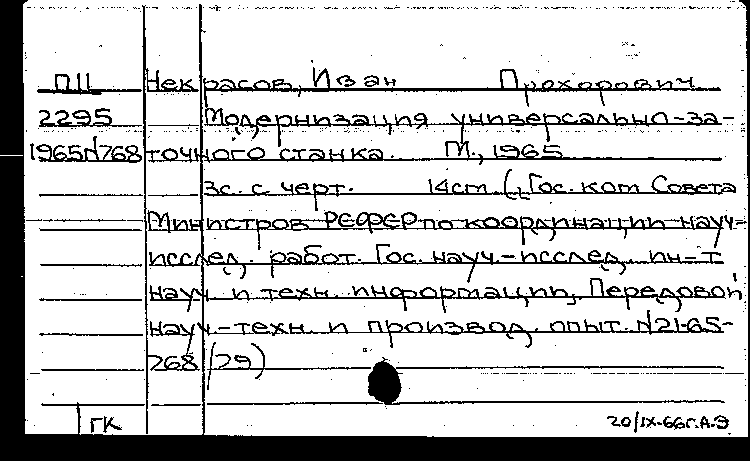 ПЦ Некрасов, Иван Прохорович
2295 Модернизация универсально-за-
1965N768 точного станка. М., 1965
3с. с черт. 14см (Гос. ком Совета
Министров РСФСР по координации науч-
исслед. работ. Гос. науч.-исслед. ин-т
науч. и техн. информации, Передовой
науч.-техн. и производ. опыт. N21-65-
768/29)
ГК 20/IX-66г. А-Э